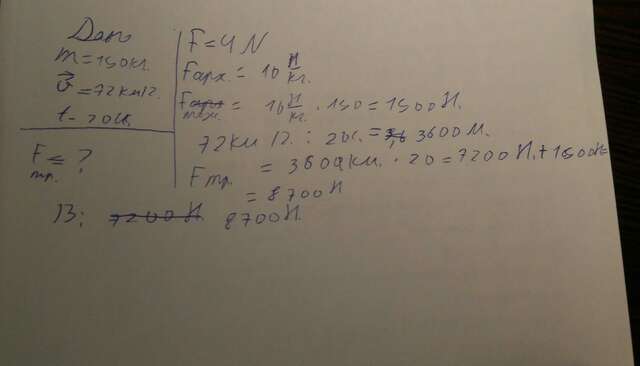 Дано
m=150кг.
v⃗=72км/г.
t-20с.
F тр. = ?
F=4N
Fарх.=10 Н/кг.
Fтяж.=10 Н/кг · 150=1500Н.
72км/г. : 20с.= 3600м.
Fтр. = 3600км. · 20=7200Н.+1500Н=
=8700Н
В: 7200Н. 8700Н.